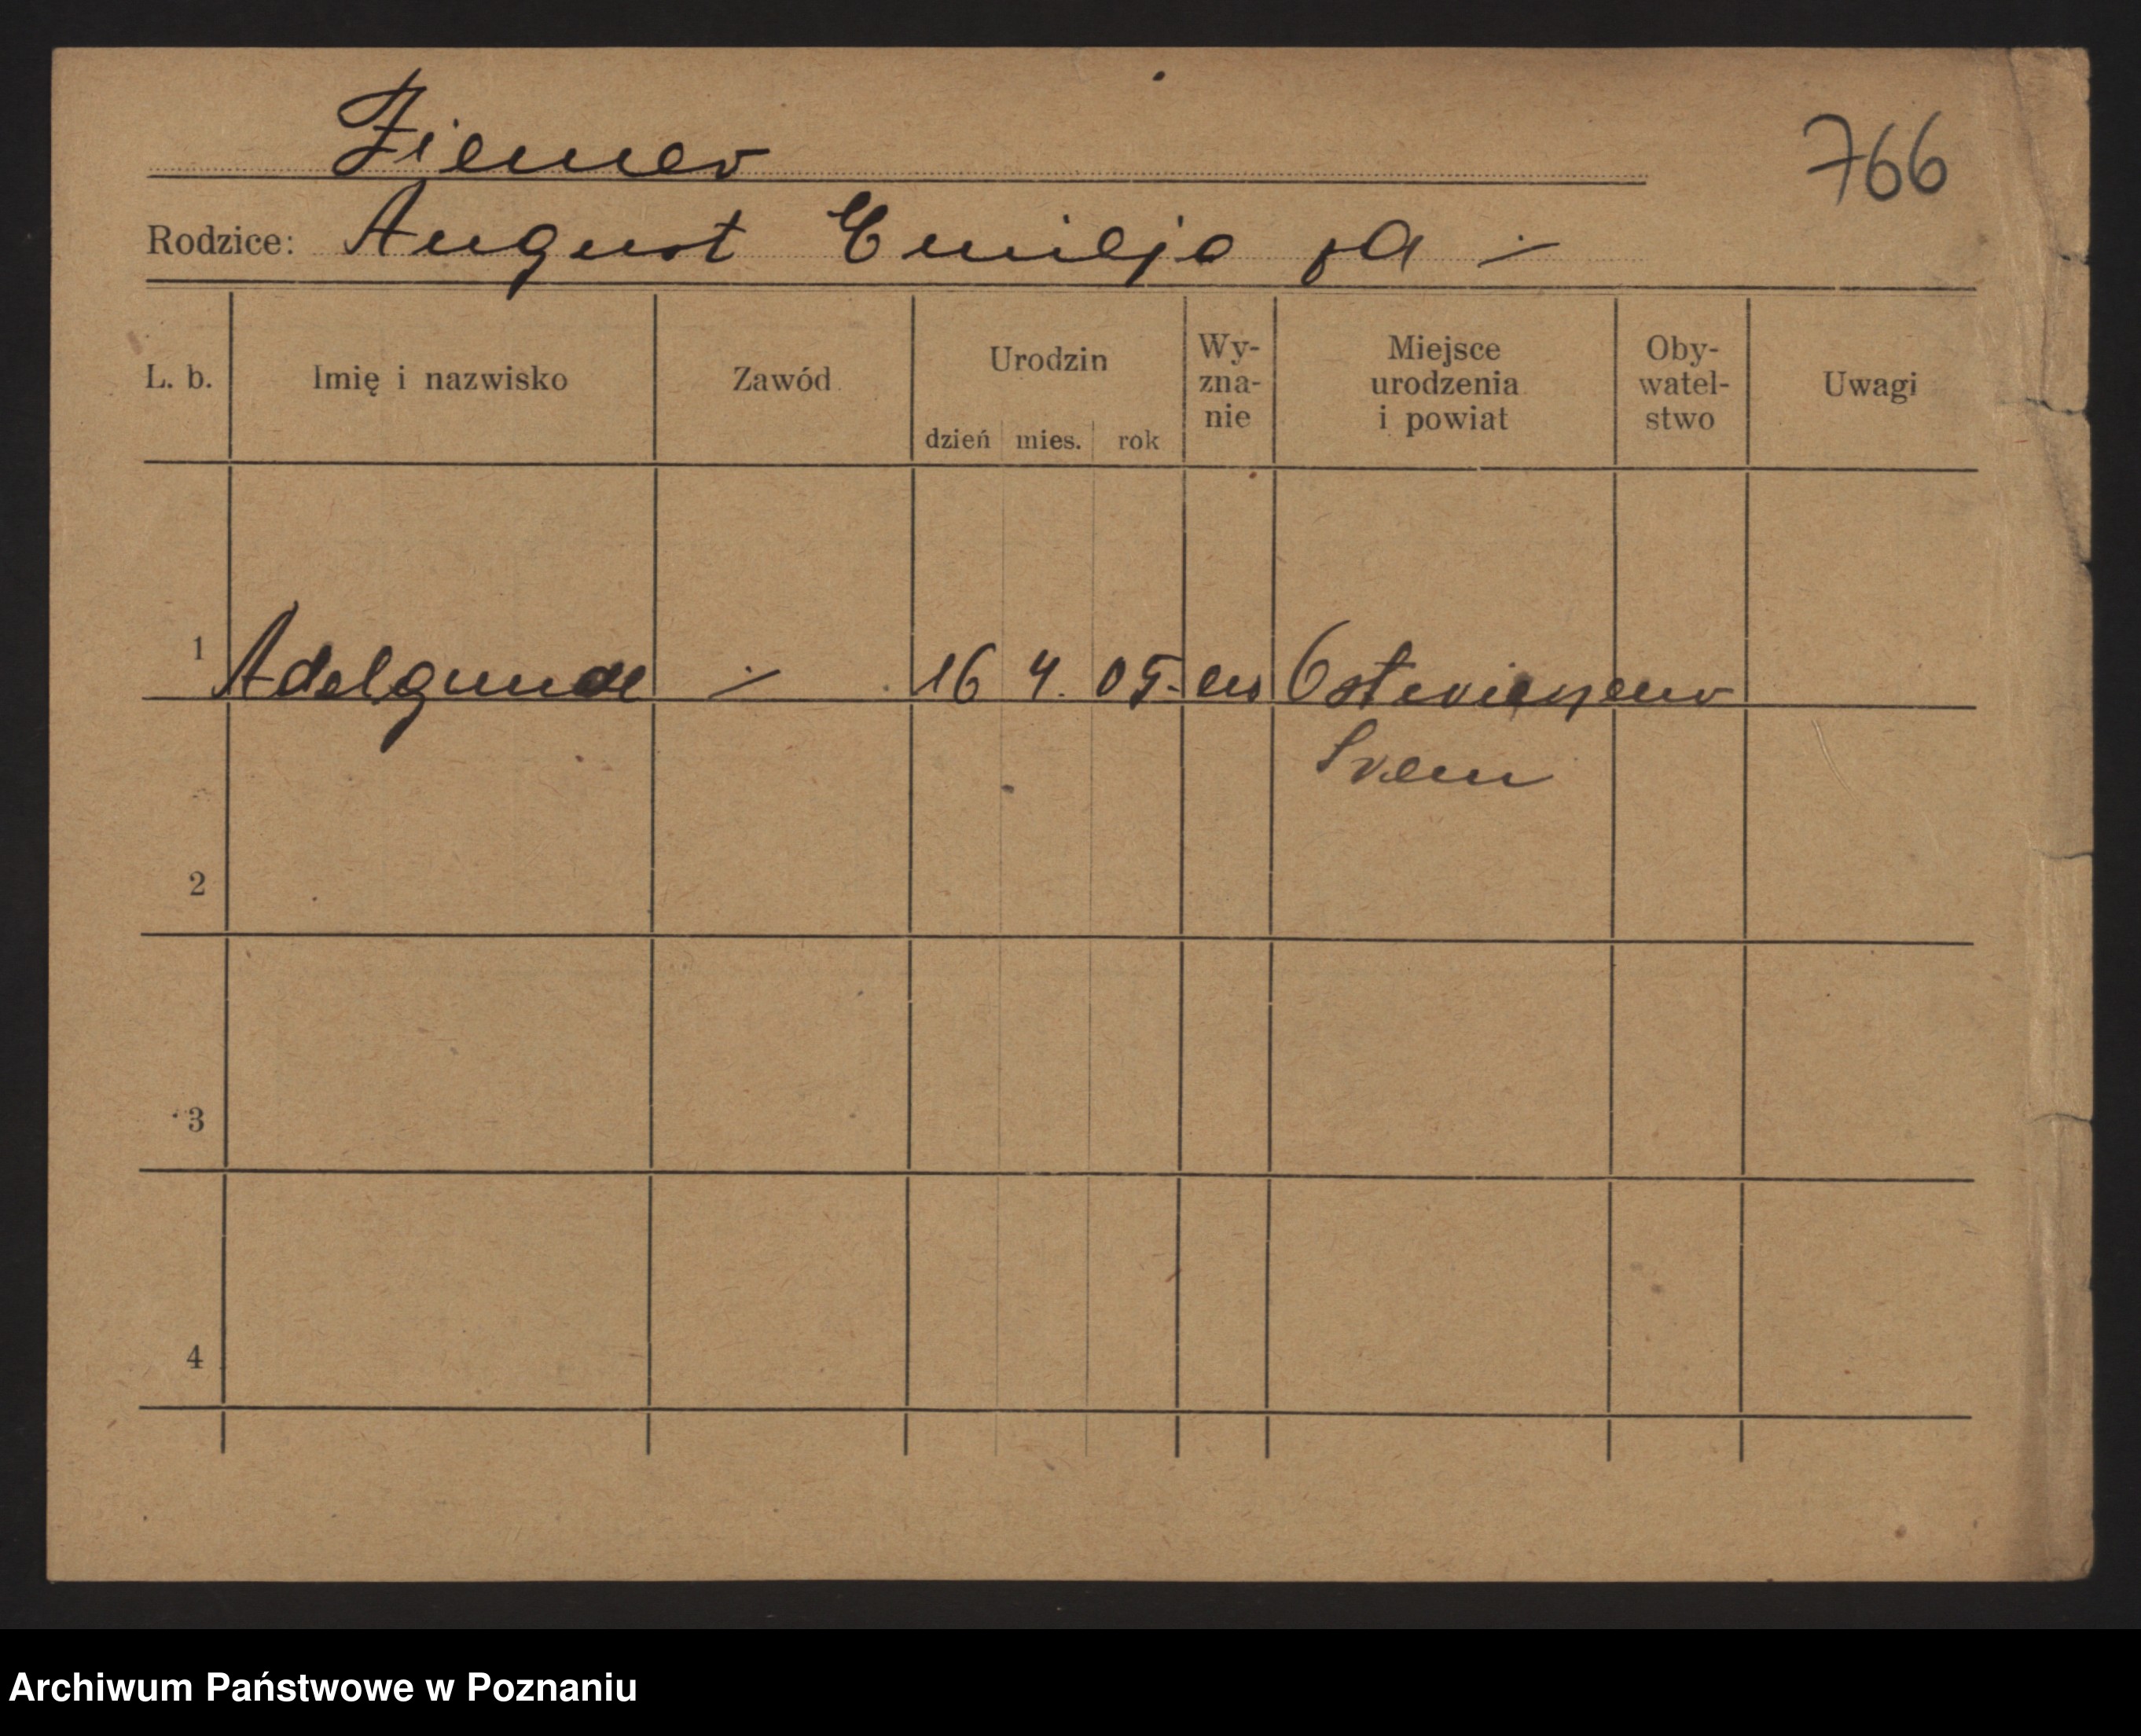 Ziemer
766
Rodzice: August Emilja
L. b. Imię i nazwisko Zawód Urodzin dzień mies. rok Wy- zna- nie Miejsce urodzenia i powiat Oby- watel- stwo Uwagi
1 Adelgunde 16 4. 05.
Srem
2
3
4
Archiwum Państwowe w Poznaniu